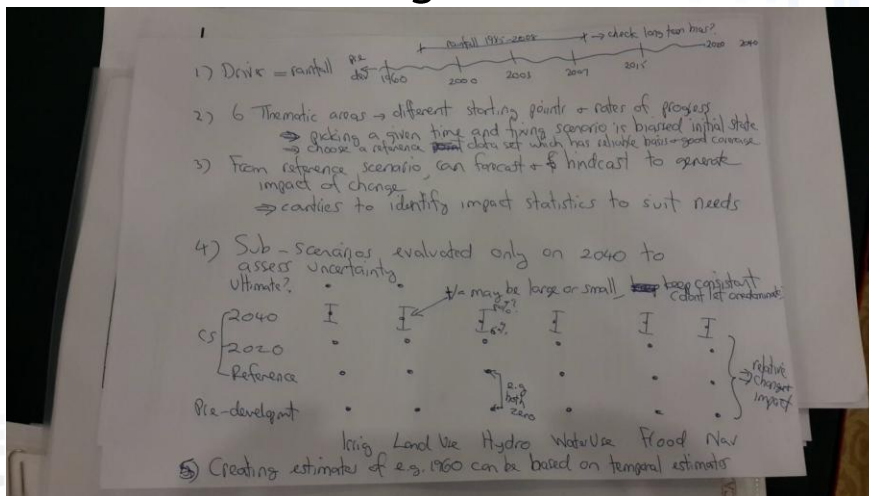 rainfall 1985-2008 → check long term bias?
1) Driver = rainfall pre dev 1960 2000 2005 2007 2015 2020 2040
2) 6 Thematic areas → different starting points & rates of progress
⇒ picking a given time and fixing scenario is biassed initial state
→ choose a reference data set which has reliable basis & good coverage
3) From reference scenario, can forecast & hindcast to generate
impact of change
⇒ countries to identify impact statistics to suit needs
4) Sub-scenarios evaluated only on 2040 to
assess uncertainty
Ultimate?
+/- may be large or small keep consistant
(dont let one dominate)
CS
2040
2020
Reference
e.g. both zero
⇒ relative change & impact
Pre-develpmt
Irrig Land Use Hydro Water Use Flood Nav
5) Creating estimates of e.g. 1960 can be based on temporal estimates